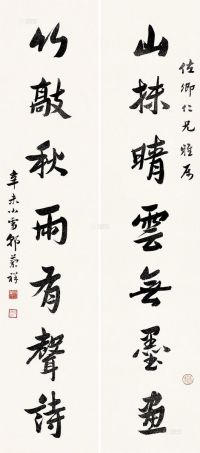 佐卿仁兄雅屬
山抹晴雲無墨畫
竹敲秋雨有聲詩
辛未小雪郭蘭祥